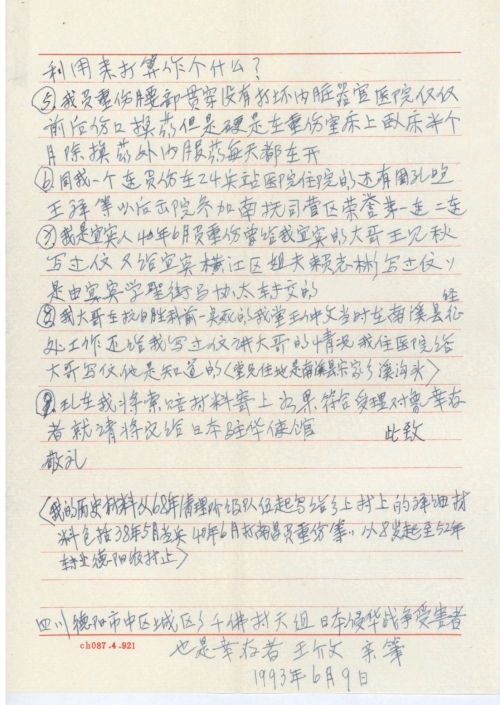 利用来打算作个什么？
⑤我负重伤腰部贯穿没有打坏内脏器宜医院仅仅
前后伤口换药但是硬是在重伤室床上卧床半个
月除换药外内服药每天都在开
⑥同我一个连负伤在24兵站医院住院的还有周孔
王 等以后出院参加南 司营区荣誉第一连二连
⑦我是宜宾人40年6月负重伤曾给我宜宾的大哥王见秋
写过信又给宜宾横江区姐夫赖志彬写过信
是由宜宾学圣街马协太转交的
⑧我大哥在抗日胜利前一 死的我堂王 文当时在南溪县征
经
处工作还给我写过信讲大哥的情况我住医院给
大哥写信他是知道的〈 住地是南溪县宋家乡溪沟头〉
⑨现在我将索赔材料寄上 如果符合受理对 幸存
者就请将 给日本驻华使馆 此致
敬礼
〈我的历史材料从68年清理阶级队伍起写给乡上村上的详细材
料包括38年5月 40年6月打南昌负重伤等 从8岁起至52年
转业德阳农村止〉
四川德阳市中区城区乡千佛村六组日本侵华战争受害者
ch087.4.921
也是幸存者 王 文 亲笔
1993年6月9日